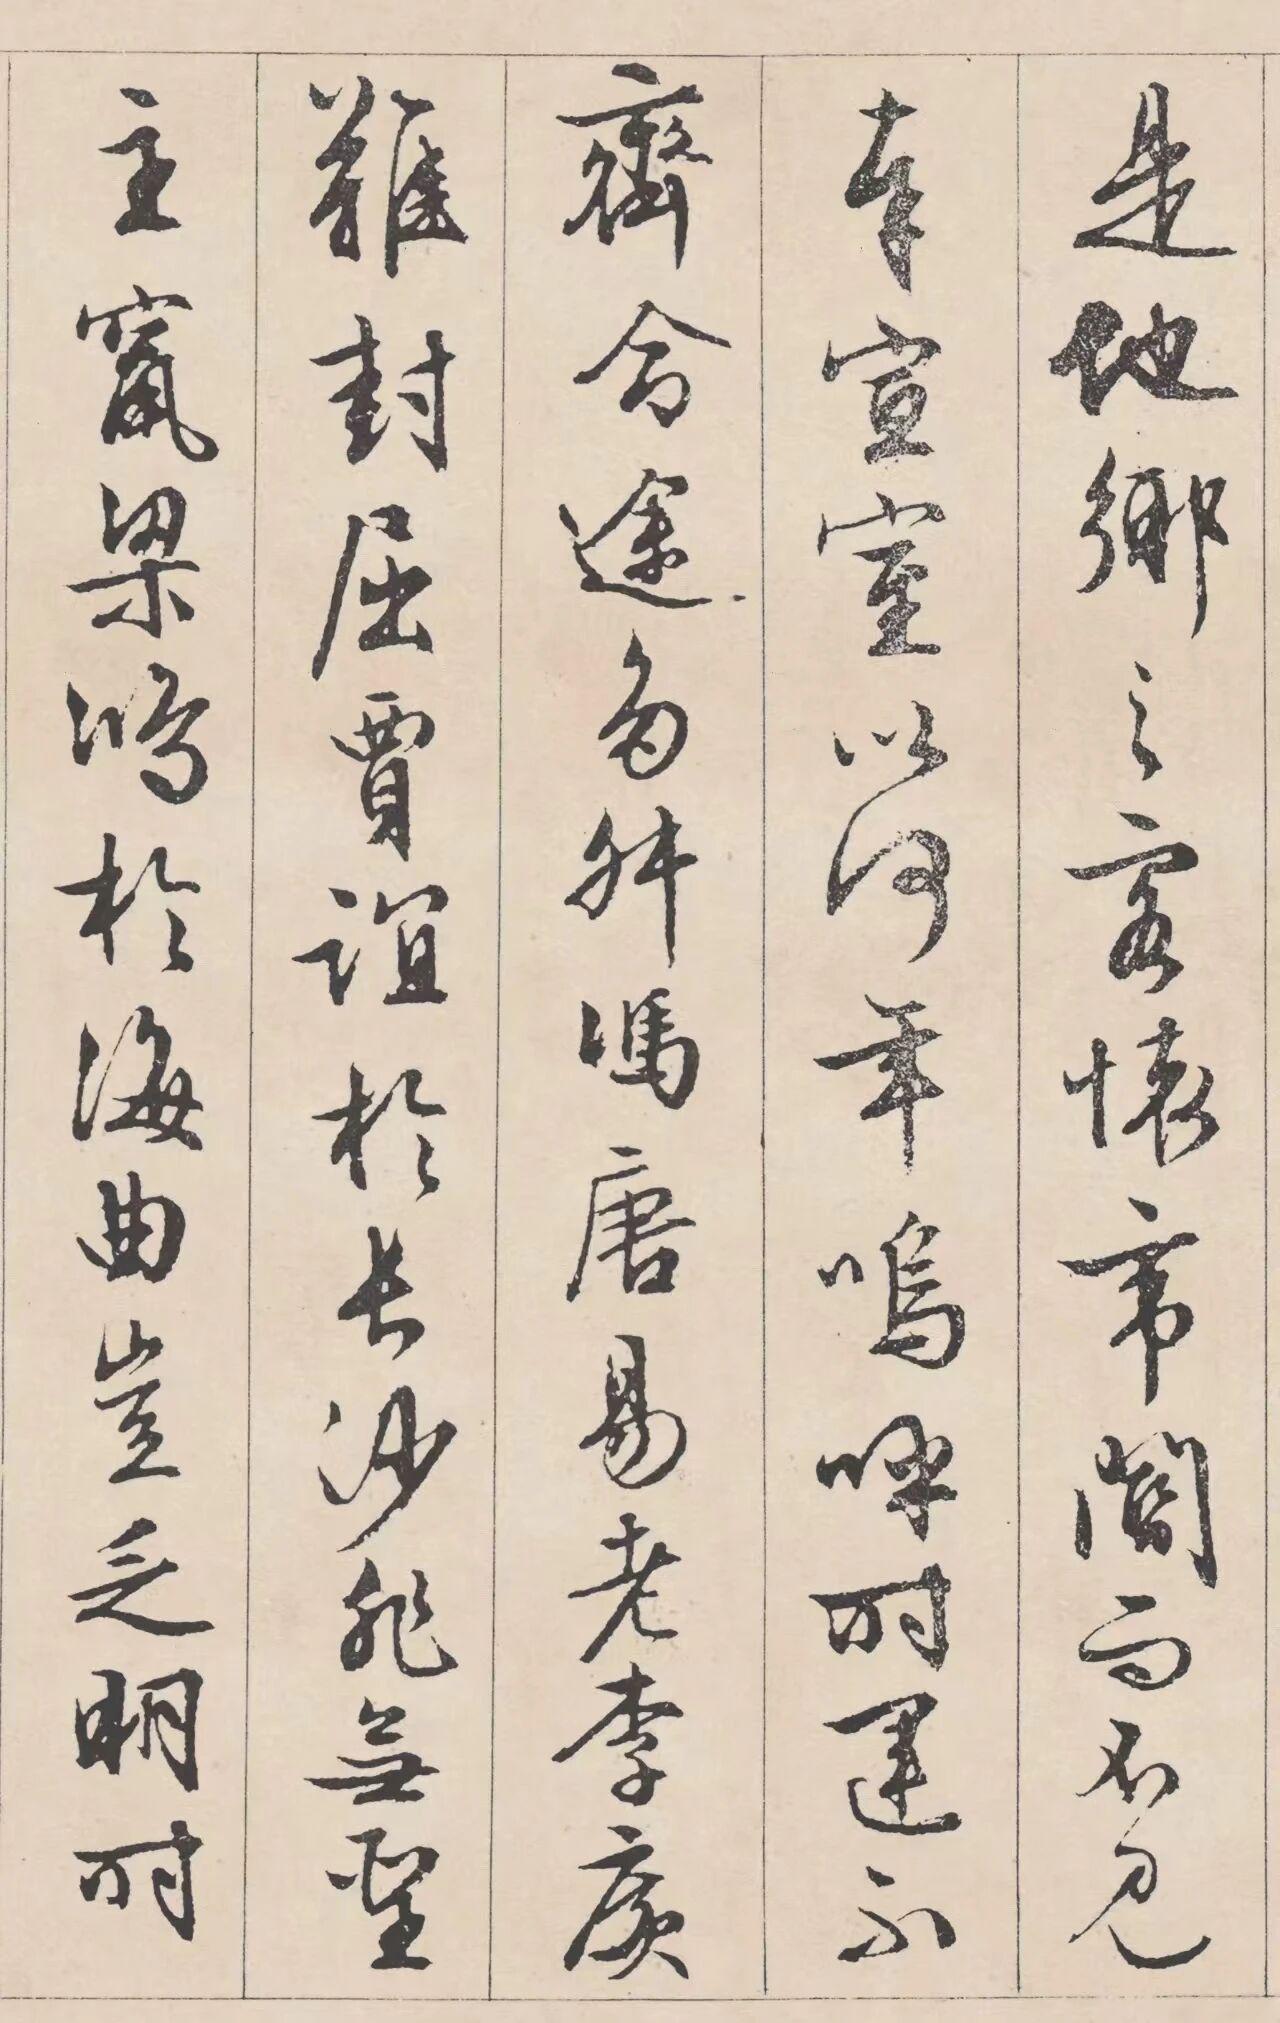 是他鄉之客懷帝閽而不見
奉宣室以何年嗚呼時運不
齊命途多舛馮唐易老李廣
難封屈賈誼於長沙非無聖
主竄梁鴻於海曲豈乏明時